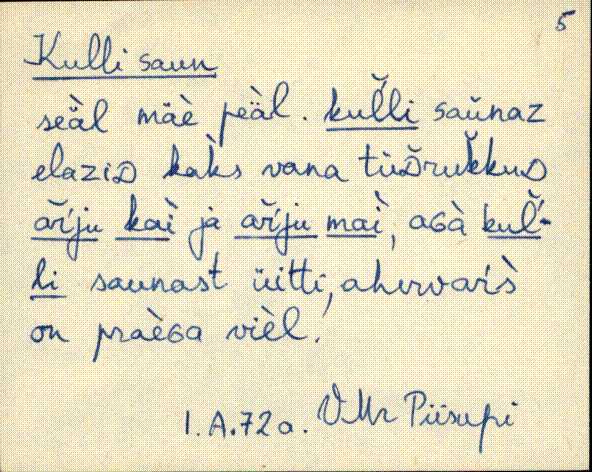 5
Kulli saun
seäl mäè peäl. kulli saunaz
elaziD kàks vana tüDrukkuD
aŕju kaì ja aŕju maì, aGà kul-
li saunast üitti, ahervaŕs
on praèGa vièl.
I.A.72a. VMr Piisupi